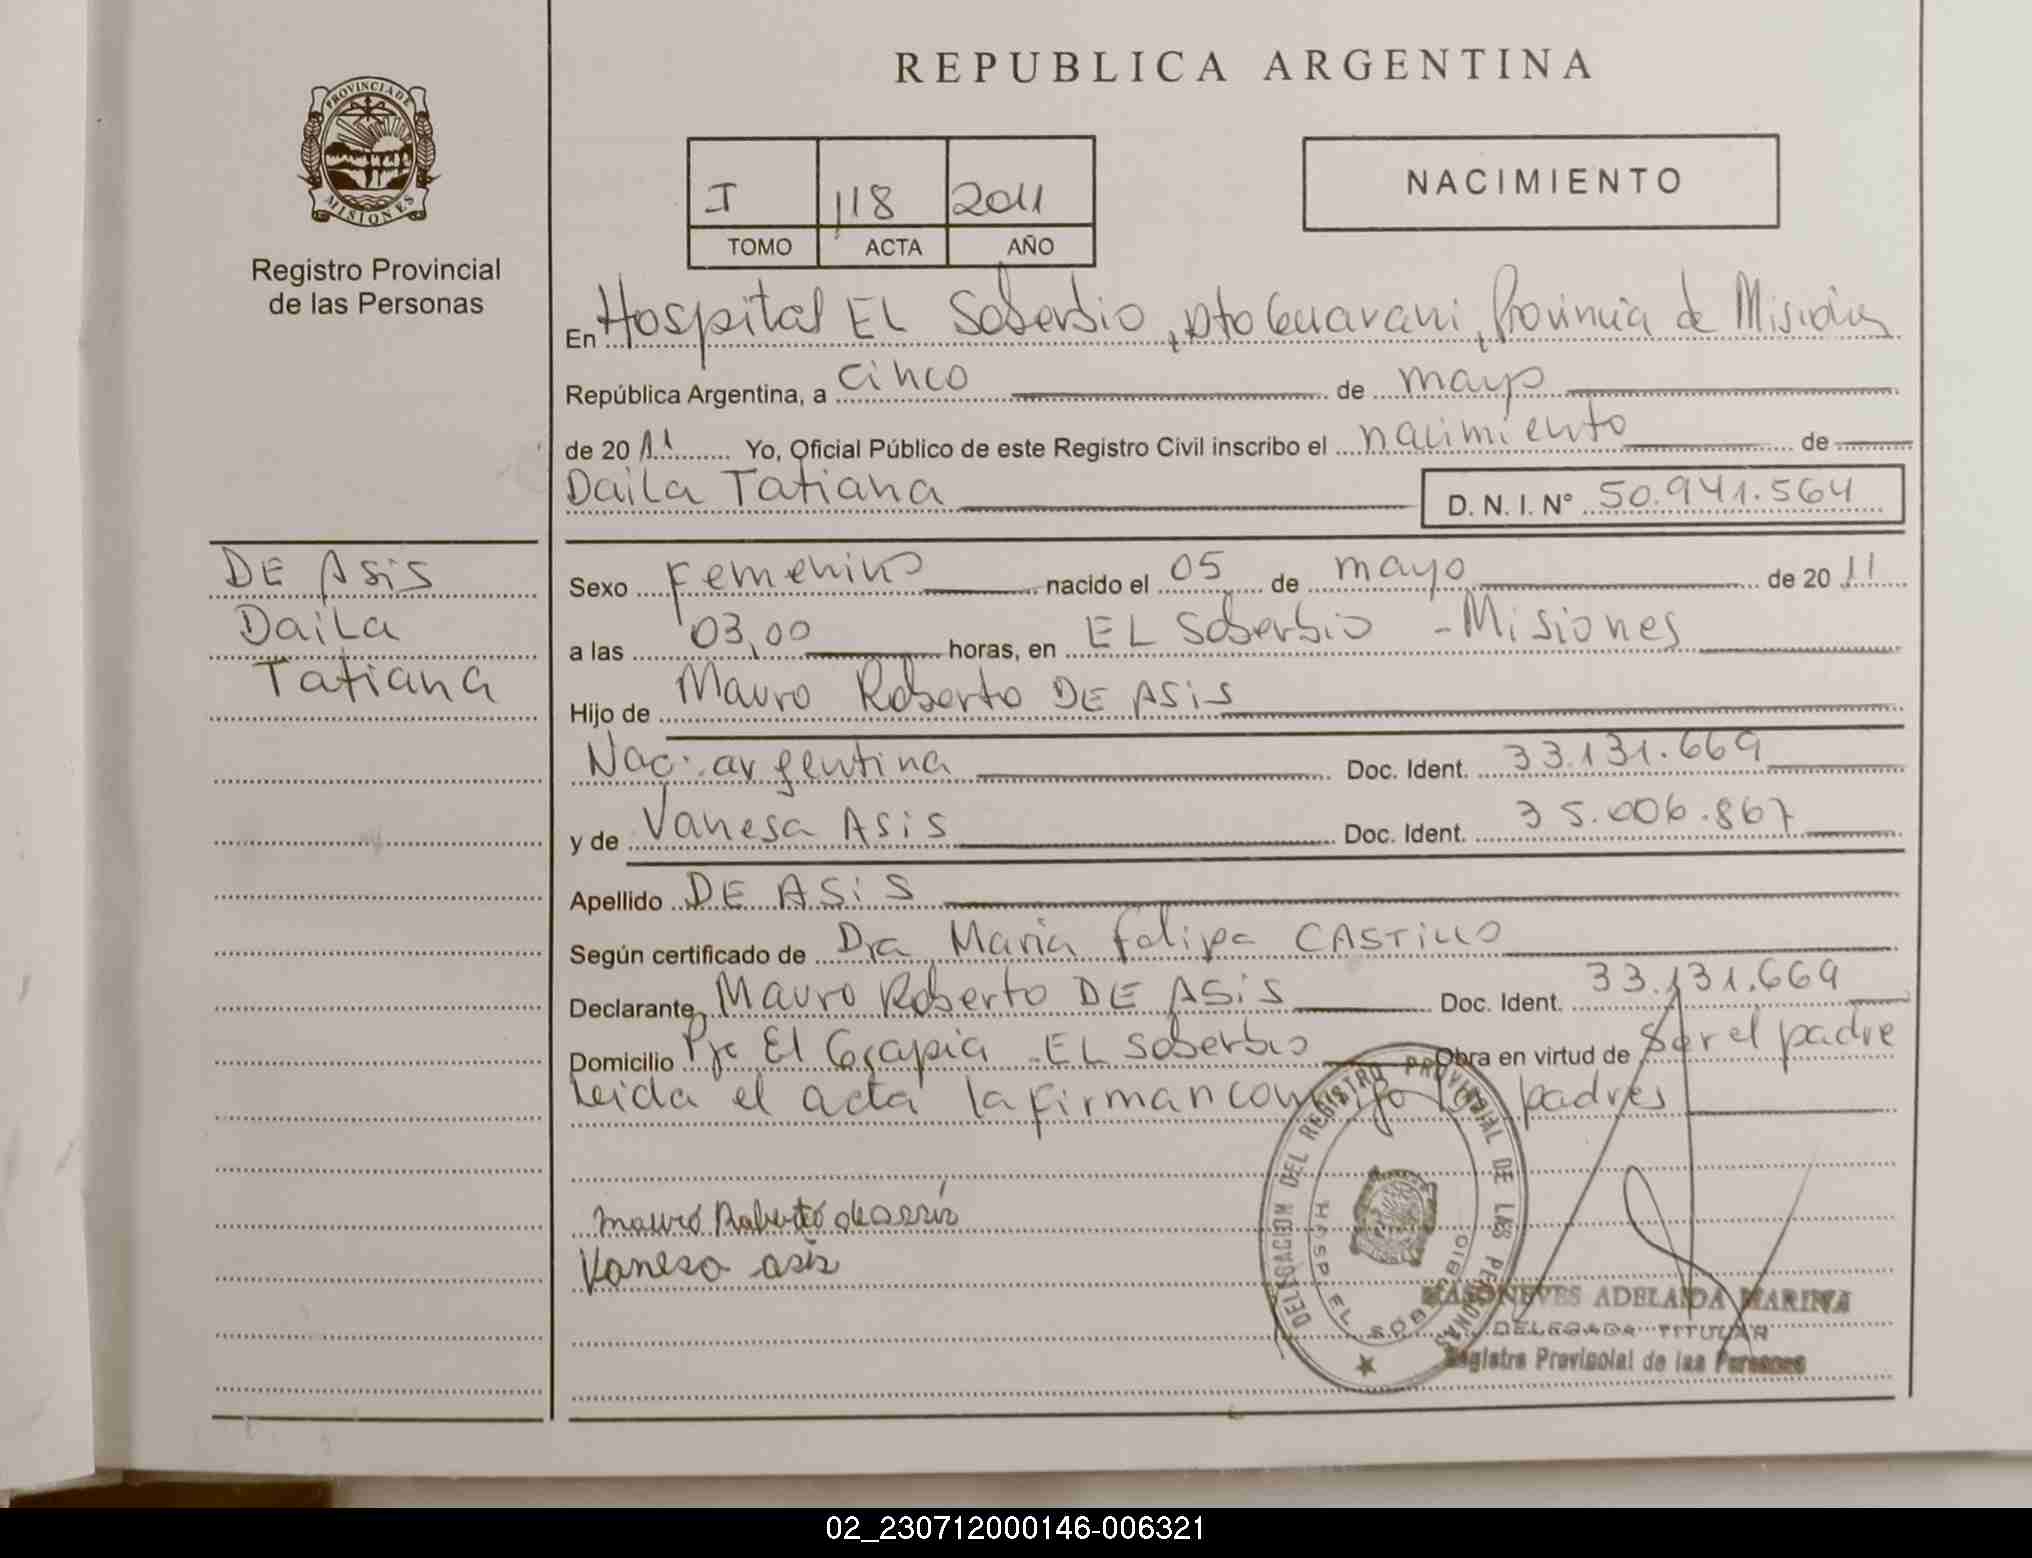 REPUBLICA ARGENTINA
PROVINCIA DE
MISIONES
Registro Provincial
de las Personas
I 118 2011
TOMO ACTA AÑO
NACIMIENTO
En Hospital EL Soberbio, Dto Guarani, Provincia de Misiones
República Argentina, a cinco de mayo
de 2011 Yo, Oficial Público de este Registro Civil inscribo el nacimiento de
Daila Tatiana D. N. I. N° 50.941.564
DE ASis
Daila
Tatiana
Sexo Femenino nacido el 05 de mayo de 2011
a las 03,00 horas, en EL Soberbio - Misiones
Hijo de Mauro Roberto DE ASis
Nac. argentina Doc. Ident. 33.131.669
y de Vanesa ASis Doc. Ident. 35.006.867
Apellido DE ASiS
Según certificado de Dra Maria Felipa CASTILLO
Declarante Mauro Roberto DE ASiS Doc. Ident. 33.131.669
Domicilio El Grapia - EL Soberbio Obra en virtud de Ser el padre
Leida el acta la firman conmigo los padres
Mauro Roberto de assis
Vanesa asis
DELEGACION DEL REGISTRO PROVINCIAL DE LAS PERSONAS
HOSP. EL SOBERBIO
MASONEVES ADELAIDA MARINA
DELEGADA TITULAR
Registro Provincial de las Personas
02_230712000146-006321